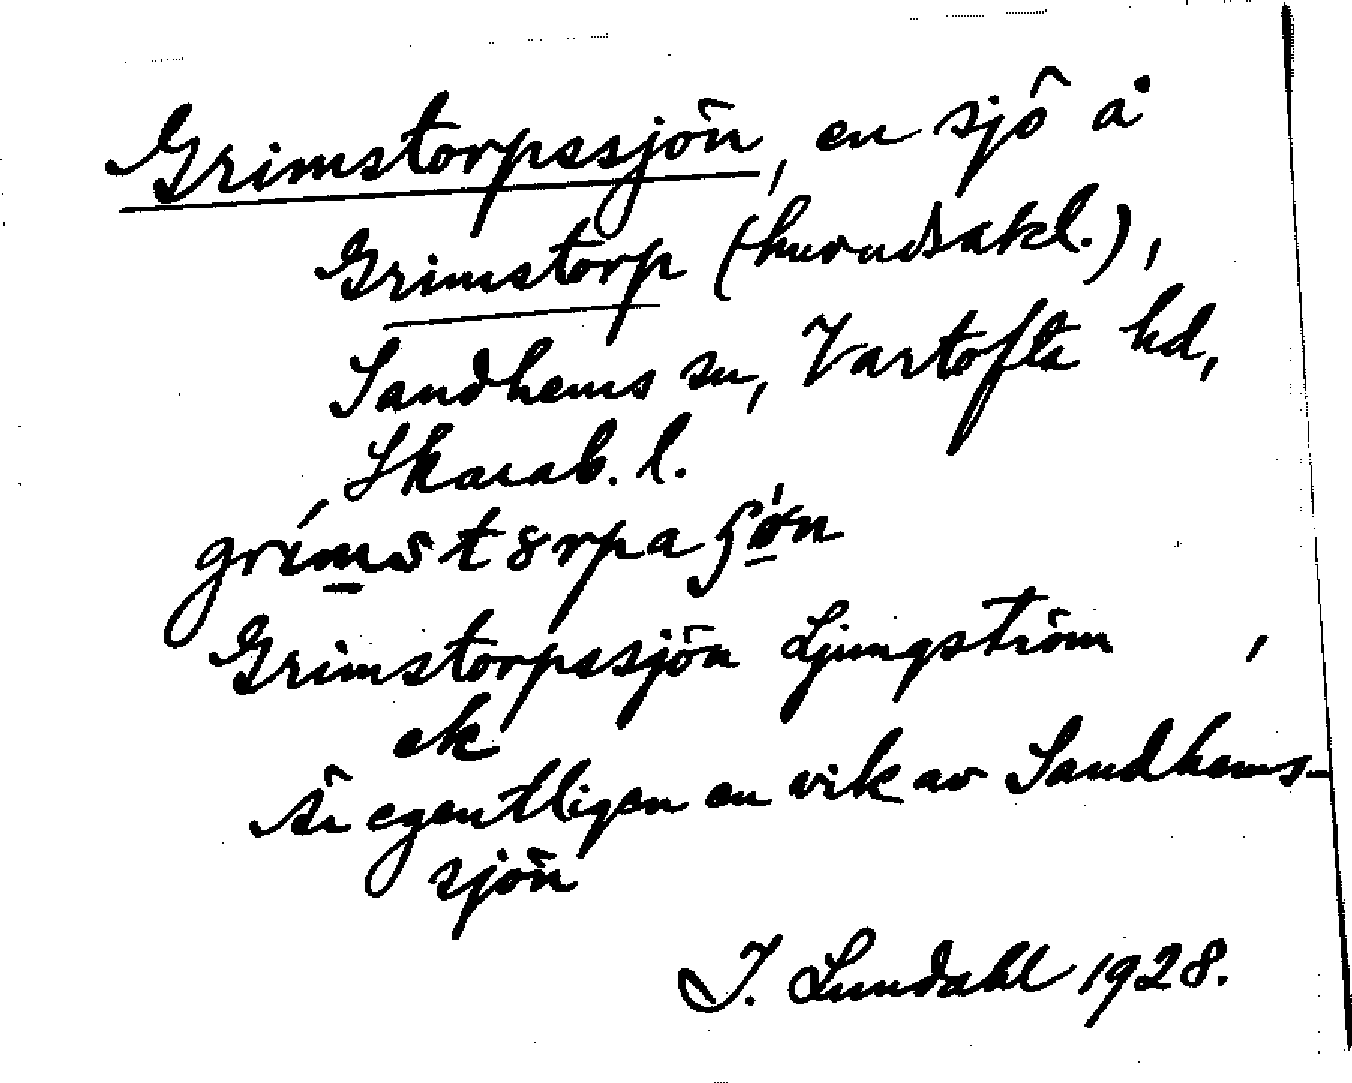 Grimstorpssjön, en sjö å
Grimstorp (huvudsakl.),
Sandhems sn, Vartofta hd,
Skarab. l.
Grimstorpssjön Ljungström
ek
Är egentligen en vik av Sandhems-
sjön
I. Lundahl 1928.